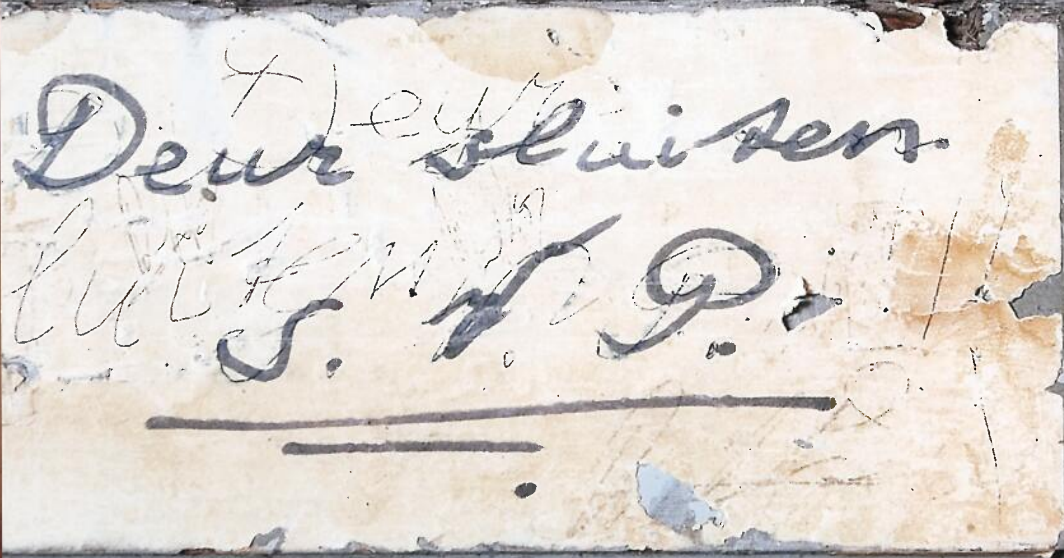 Deur sluiten
S. V. P.